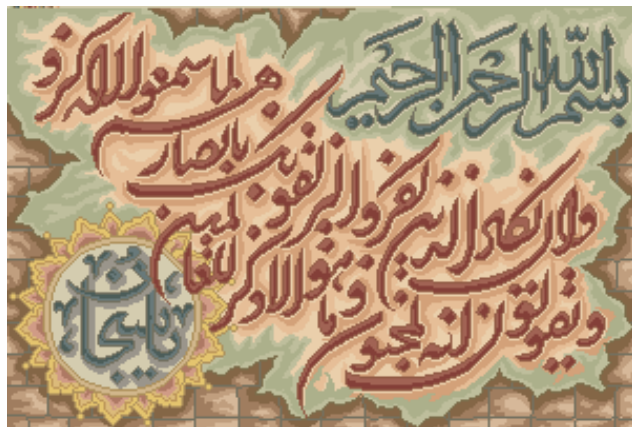 بسم الله الرحمن الرحيم
وان يكاد الذين كفروا ليزلقونك بابصارهم لما سمعوا الذكر و
ويقولون انه لمجنون وما هو الا ذكر للعالمين